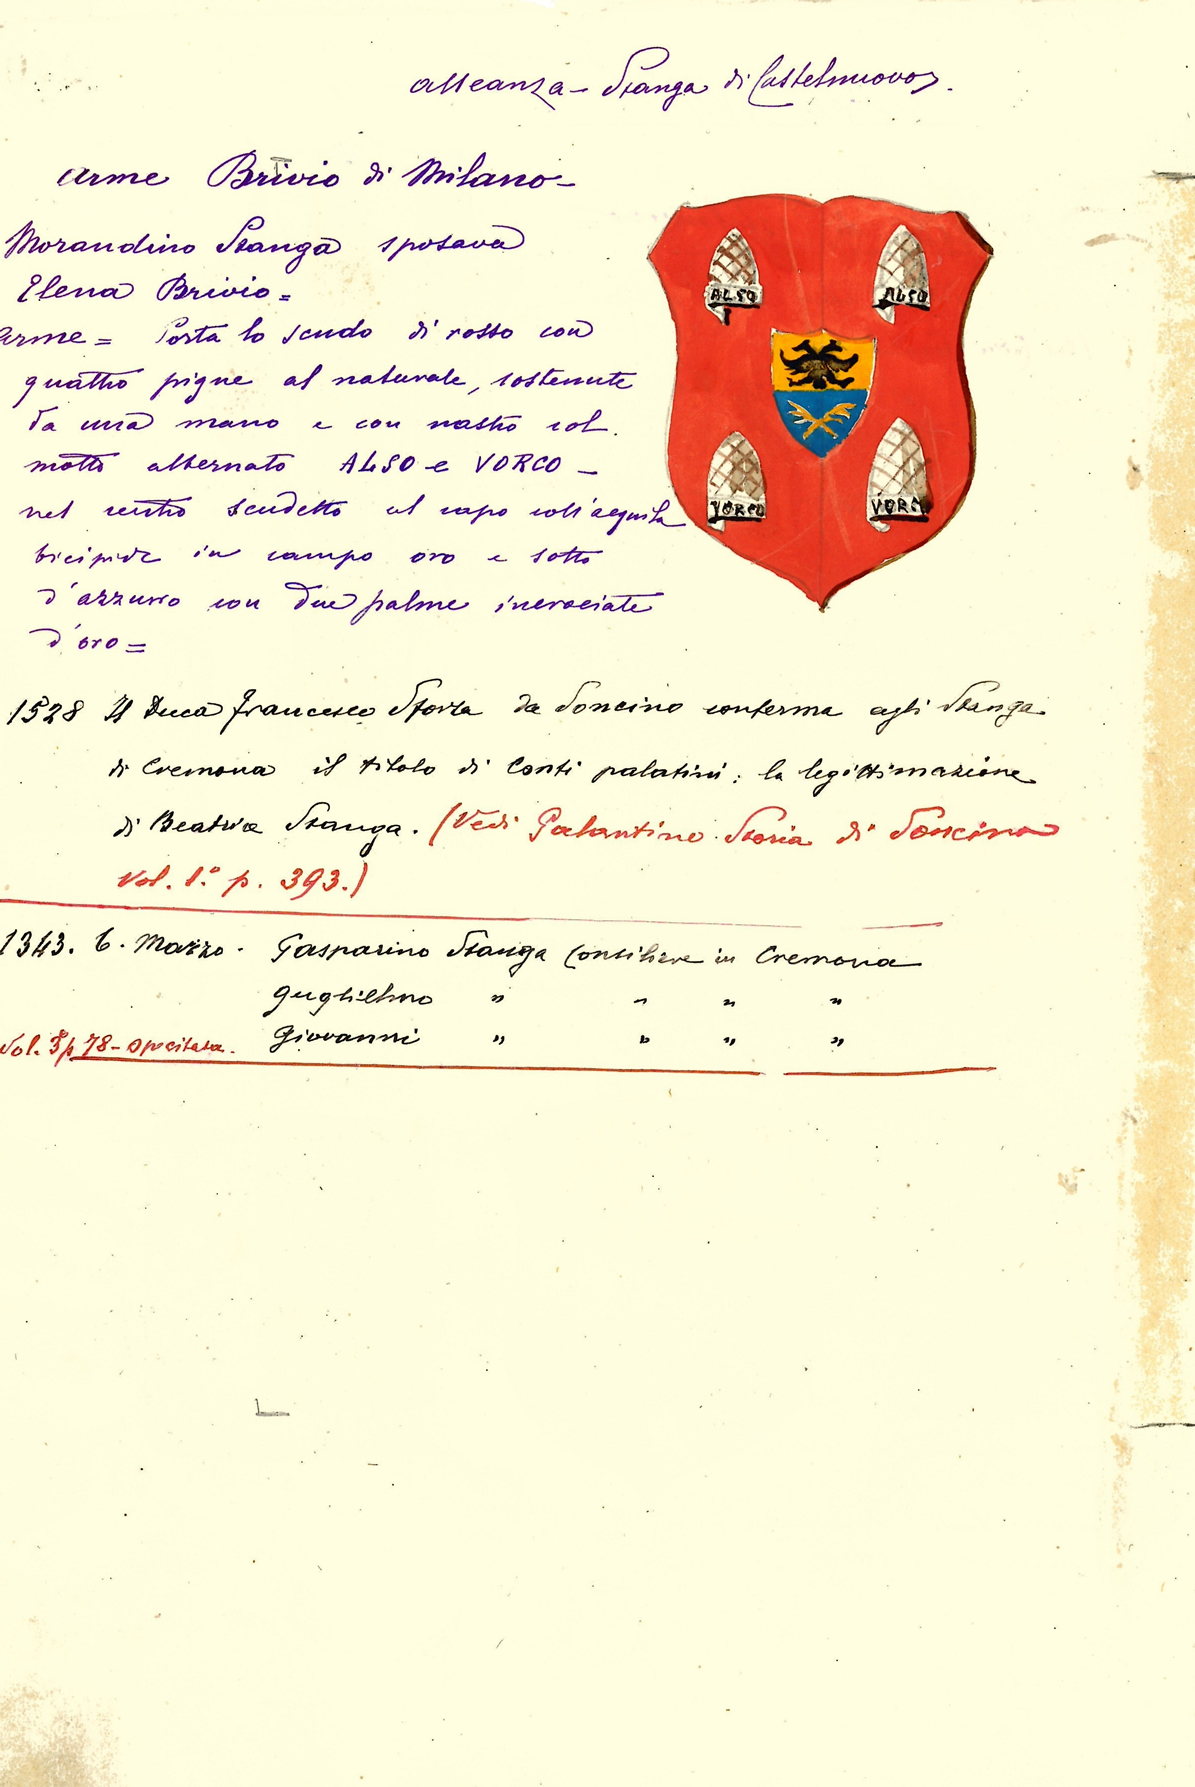 alleanza - Stanga di Castelnuovo.
Arme Brivio di Milano -
Morandino Stanga sposava
Elena Brivio =
Arme = Porta lo scudo di rosso con
quattro pigne al naturale, sostenute
da una mano e con nastro col
motto alternato ALSO e VORCO -
nel centro scudetto al capo coll'aquila
bicipide in campo oro e sotto
d'azzurro con due palme incrociate
d'oro =
ALSO ALSO
VORCO VORCO
1528 Il Duca Francesco Sforza da Soncino conferma agli Stanga
di Cremona il titolo di Conti palatini: la legittimazione
di Beatrice Stanga. (Vedi Galantino Storia di Soncino
Vol. 1.° p. 393.)
1343. 6. Marzo. Gasparino Stanga Consiliere in Cremona
Guglielmo " " " "
Giovanni " " " "
Vol. p 78 -